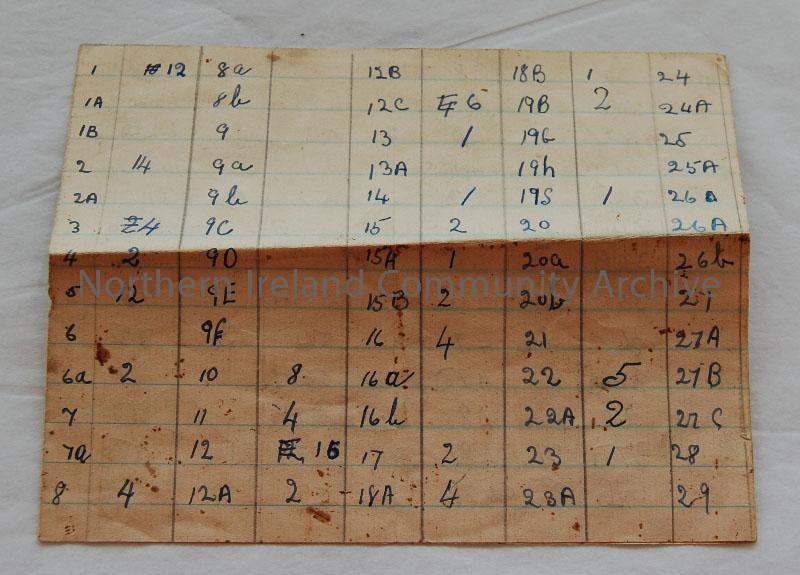 1 12 8a 12B 18B 1 24
1A 8b 12C 6 19B 2 24A
1B 9 13 1 19b 25
2 14 9a 13A 19h 25A
2A 9b 14 1 19S 1 26a
3 4 9C 15 2 20 26A
4 2 9D 15A 1 20a 26b
5 12 9E 15B 2 20b 27
6 9F 16 4 21 27A
6a 2 10 8 16a 22 5 27B
7 11 4 16b 22A 2 27C
7a 12 16 17 2 23 1 28
8 4 12A 2 18A 4 23A 29
Northern Ireland Community Archive